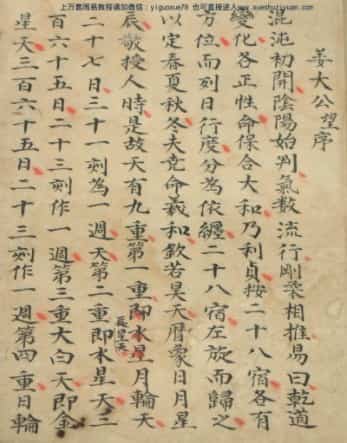 上万套周易教程请加微信：yiguoxue78 也可直接进入www.xuezhouyi.com
姜大公望序
混沌初開陰陽始判氣数流行剛柔相推易曰乾道
變化各正性命保合大和乃利貞按二十八宿各有
方位而列日行度分為依纏二十八宿左旋而歸之
以定春夏秋冬夫堯命羲和欽若昊天曆象日月星
辰敬授人時是故天有九重第一重即水星月輪天
二十七日三十一刻為一週天第二重即水星天三
百六十五日二十三刻作一週第三重大白天即金
星天三百六十五日二十三刻作一週第四重日輪